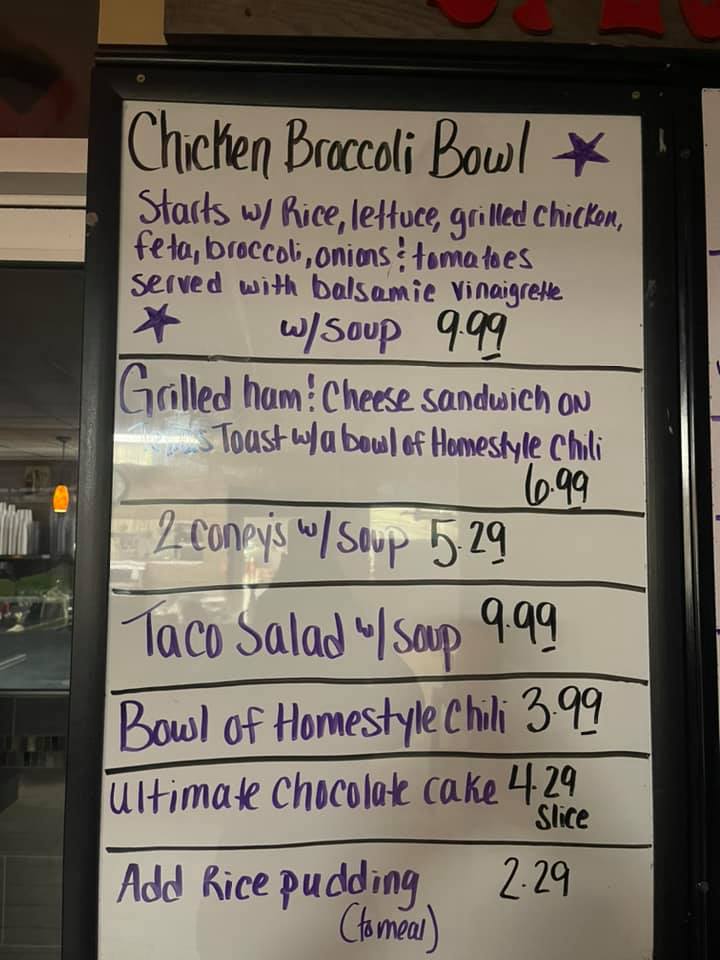 Chicken Broccoli Bowl
Starts w/ Rice, lettuce, grilled chicken,
feta, broccoli, onions & tomatoes
served with balsamic vinaigrette
w/soup 9.99
Grilled ham & Cheese sandwich on
Toast w/a bowl of Homestyle Chili
6.99
2 coney's w/ soup 5.29
Taco Salad w/ soup 9.99
Bowl of Homestyle Chili 3.99
Ultimate Chocolate cake 4.29
slice
Add Rice pudding 2.29
(to meal)